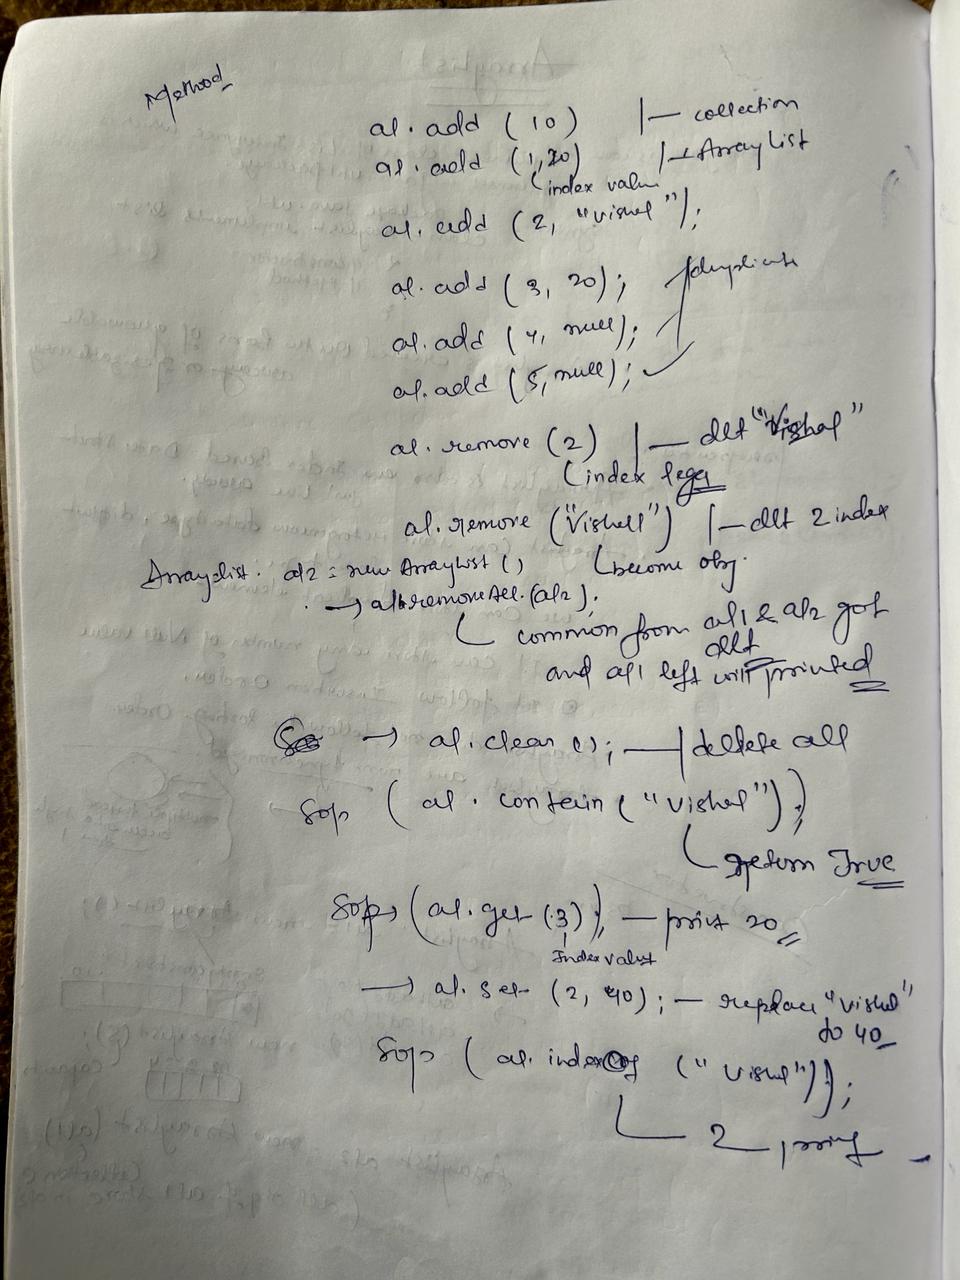 Method
al. add (10) |— collection
al. add (1,20) |→ ArrayList
(index value
al. add (2, "vishal");
al. add (3, 20); duplicate
al. add (4, null);
al. add (5, null);
al. remove (2) |— dlt "Vishal"
(index
al. remove ("Vishal") |— dlt 2 index
ArrayList. al2 = new ArrayList () become obj.
→ removeAll. (al2);
common from al1 & al2 got
dlt
and al1 left will printed
→ al. clear (); —| dellete all
Sop ( al . contain ("vishal"));
return True
Sop ( al. get (3)); — print 20
Index value
→ al. set (2, 40); — replace "vishal"
to 40
Sop ( al. indexOf ("vishal"));
2 print